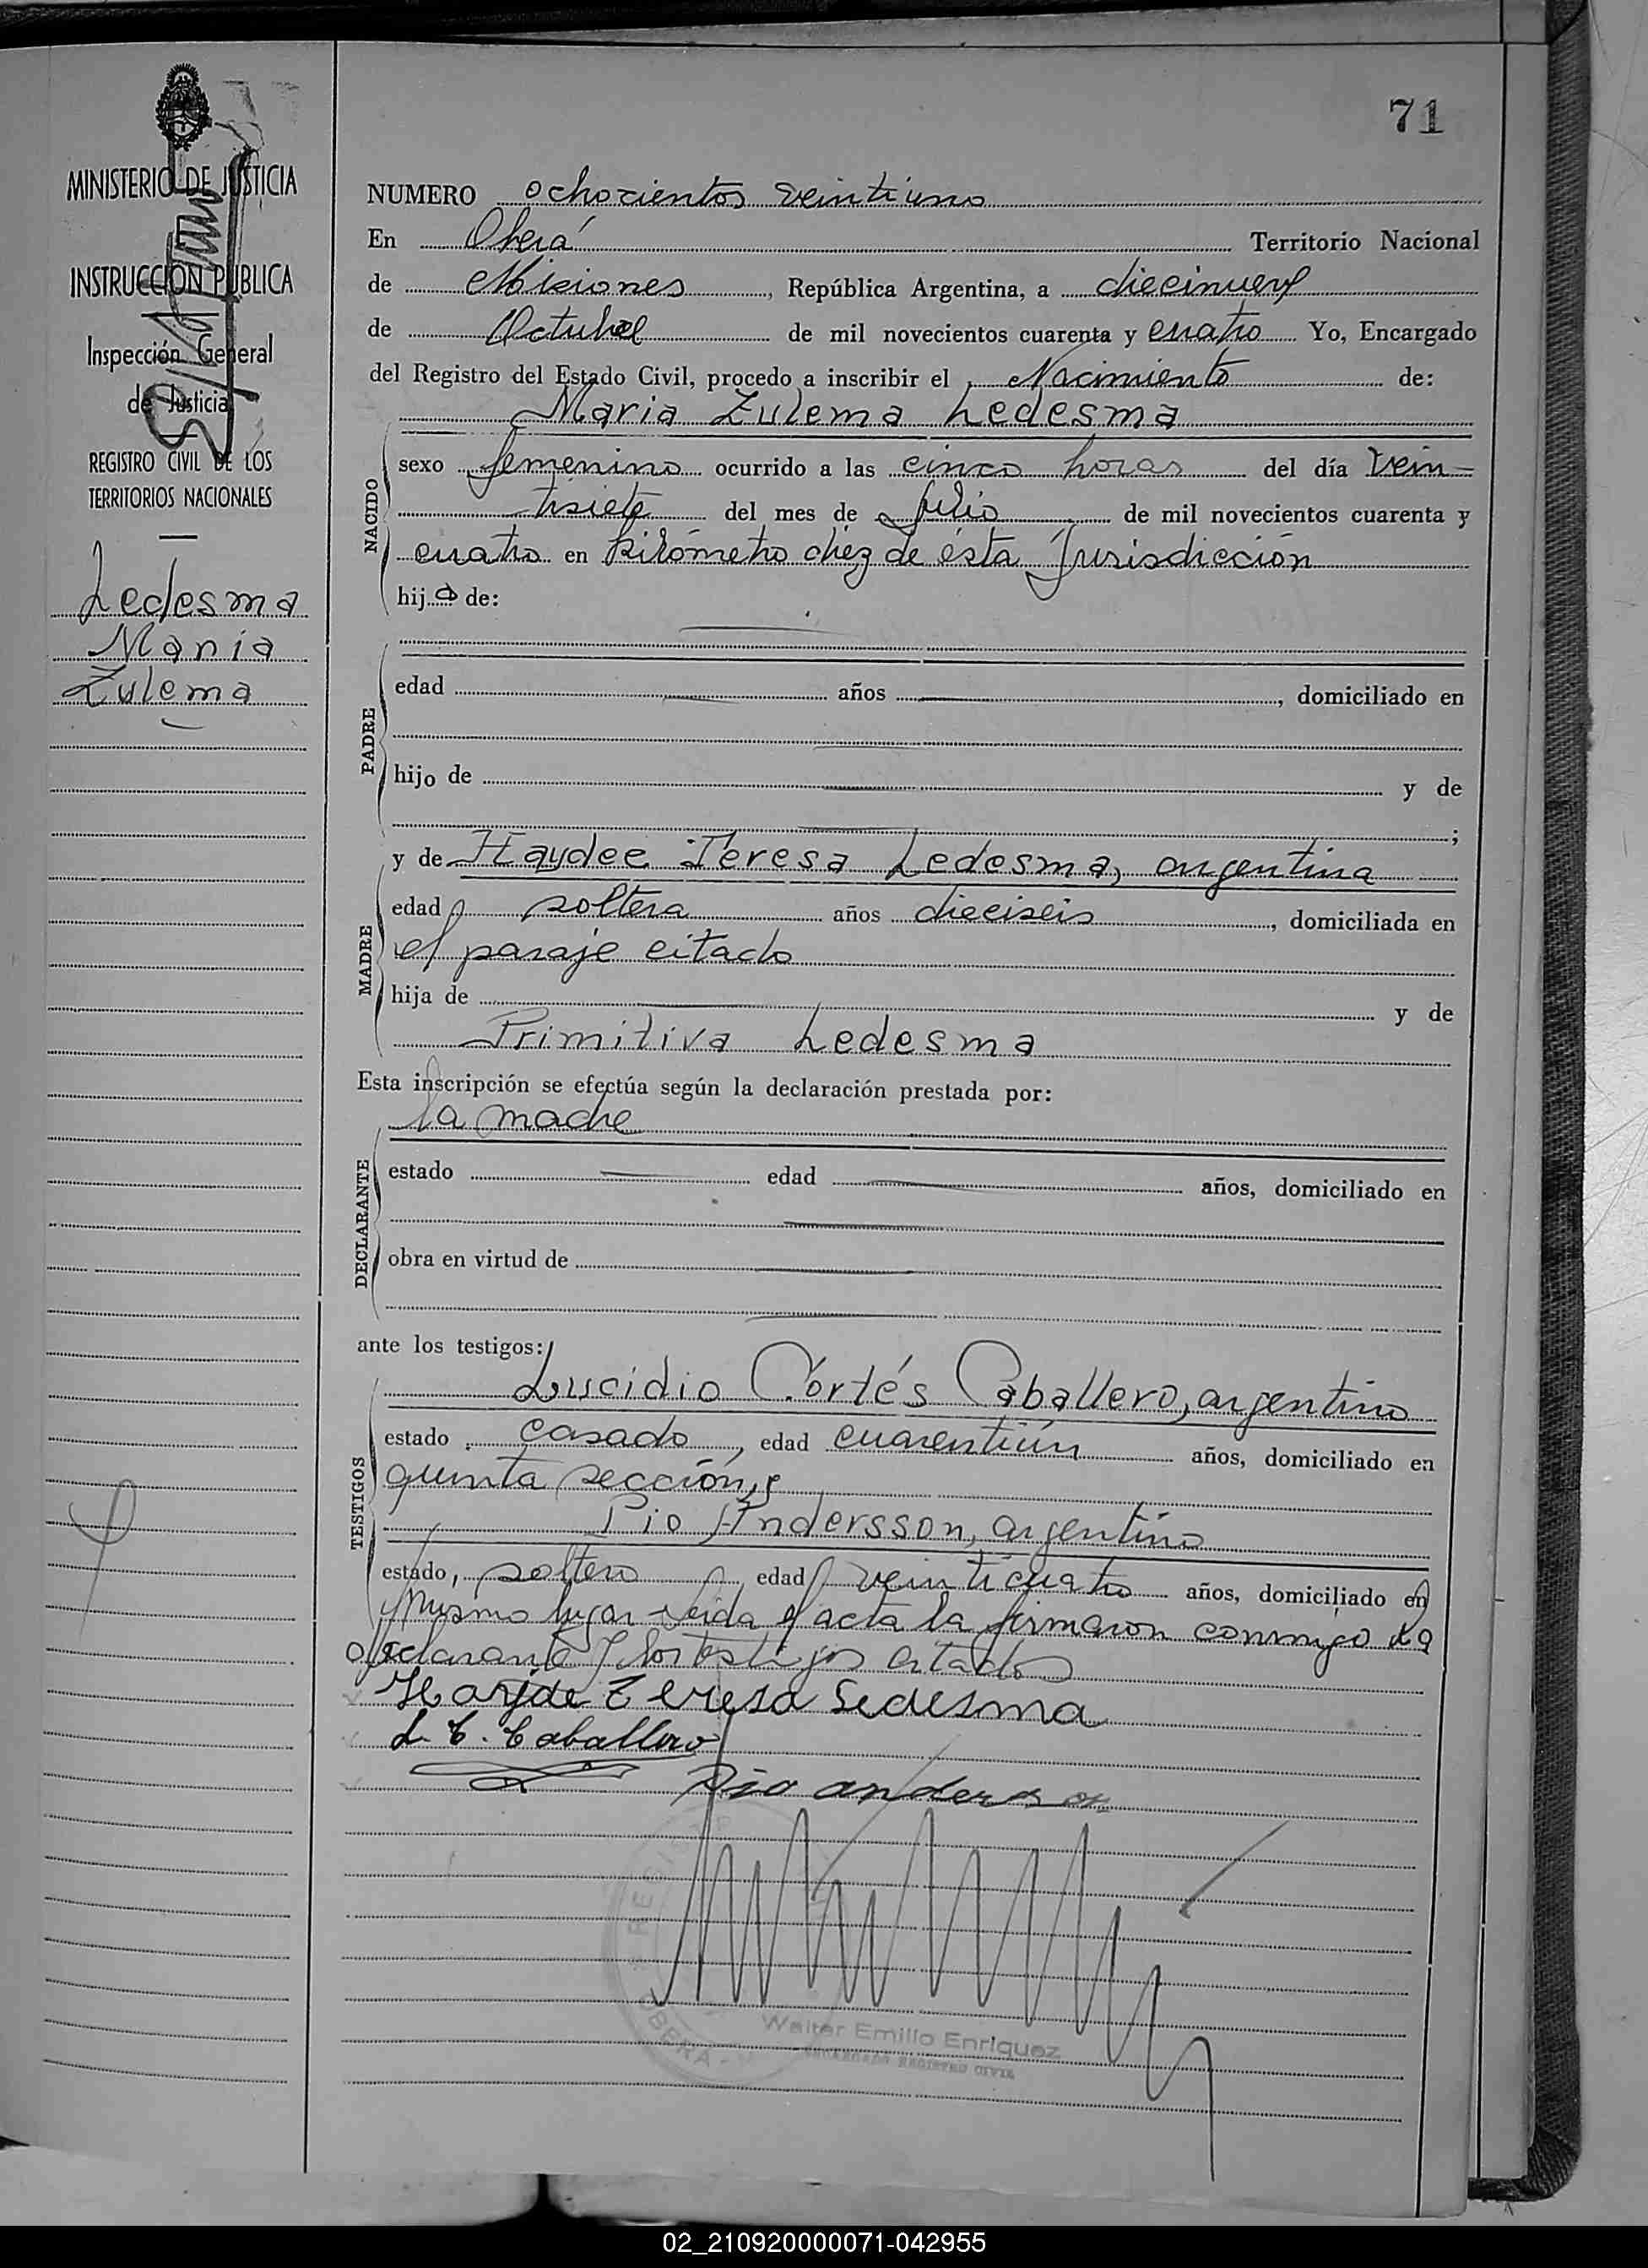 71
MINISTERIO DE JUSTICIA
INSTRUCCION PUBLICA
Inspección General
de Justicia
REGISTRO CIVIL DE LOS
TERRITORIOS NACIONALES
Ledesma
Maria
Zulema
NUMERO ochocientos veintiuno
En Oberá Territorio Nacional
de Misiones, República Argentina, a diecinueve
de Octubre de mil novecientos cuarenta y cuatro Yo, Encargado
del Registro del Estado Civil, procedo a inscribir el Nacimiento de:
Maria Zulema Ledesma
NACIDO
sexo femenino ocurrido a las cinco horas del día vein-
tisiete del mes de Julio de mil novecientos cuarenta y
cuatro en kilómetro diez de ésta Jurisdicción
hija de:
PADRE
edad años , domiciliado en
hijo de y de
;
MADRE
y de Haydee Teresa Ledesma, argentina
edad soltera años dieciseis, domiciliada en
el paraje citado
hija de y de
Primitiva Ledesma
Esta inscripción se efectúa según la declaración prestada por:
la madre
DECLARANTE
estado edad años, domiciliado en
obra en virtud de
ante los testigos:
TESTIGOS
Lucidio Cortés Caballero, argentino
estado casado, edad cuarentiún años, domiciliado en
quinta sección, y
Pio Andersson, argentino
estado, soltero edad veinticuatro años, domiciliado en
mismo lugar leida el acta la firmaron conmigo la
declarante y los testigos citados
Hayde Teresa Ledesma
L. C. Caballero
Pio anderson
REGIST
OBERA
Walter Emilio Enriquez
ENCARGADO REGISTRO CIVIL
02_210920000071-042955